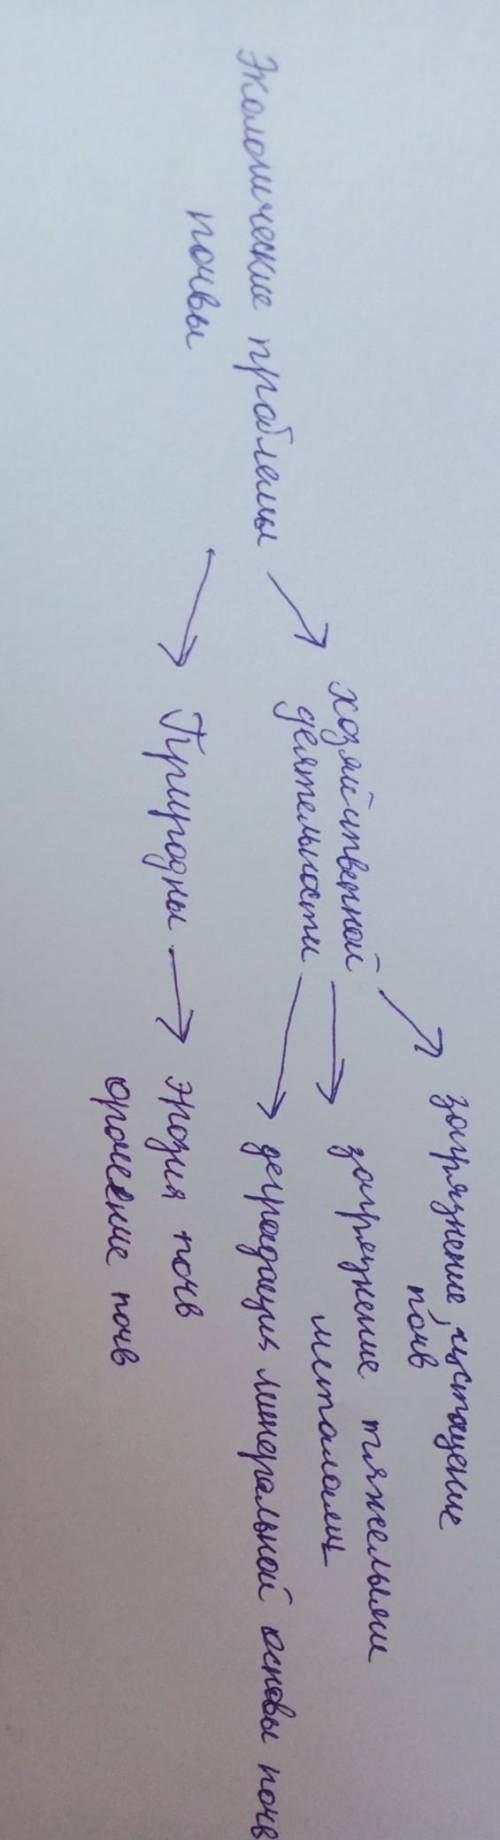 Экологические проблемы
почвы
хозяйственной
деятельности
загрязнение, истощение
почв
загрязнение тяжелыми
металами
деградация минеральной основы почв
Природны
эрозия почв
орошение почв